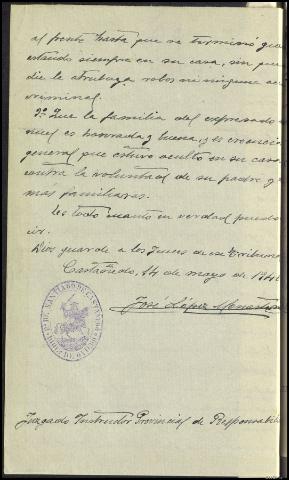 al frente hasta que se terminó gue
estando siempre en su casa, sin que
die le atribuya robos ni ninguna ac
criminal.
7º Que la familia del expresado
nuel es honrada y buena, y es creencia
general que estuvo oculto en su casa
contra la voluntad de su padre y
más familiares.
Es todo cuanto en verdad puedo
ir.
Dios guarde a los Jueces de ese Tribuna
Castañedo, 14 de mayo de 194
José López
Juzgado Instructor Provincial de Responsabili